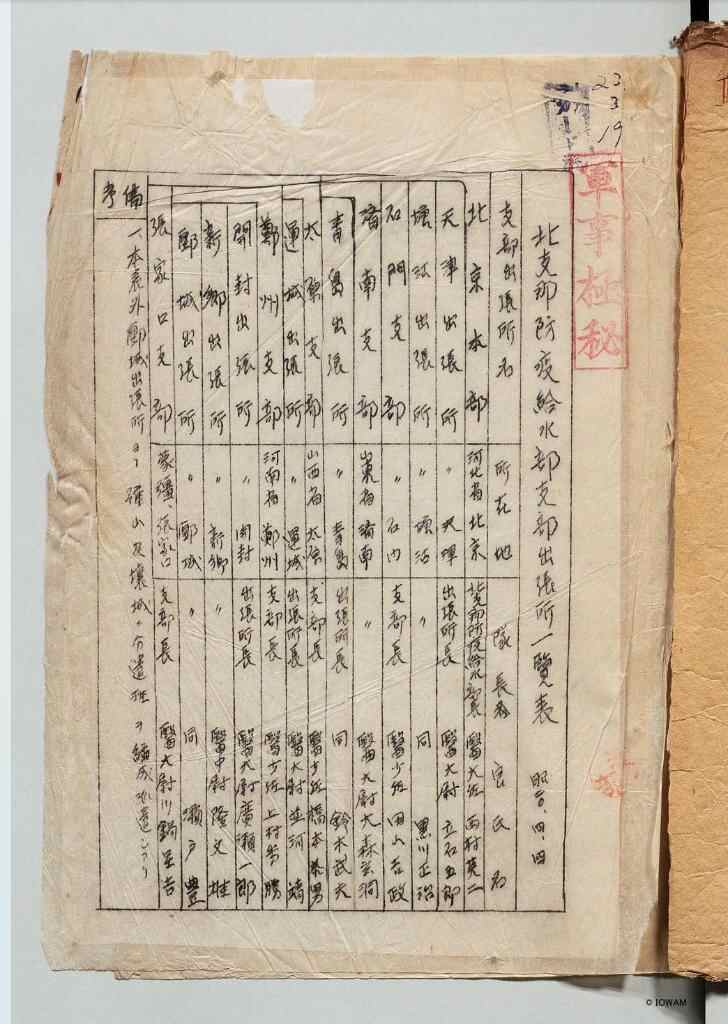 23
3
19
軍事極秘
北支那防疫給水部支部出張所一覽表 昭、二〇、四、四
支部出張所名 所在地 隊長 官氏名
北京本部 河北省北京 北支那防疫給水部長 醫大佐 西村英二
天津出張所 〃 天津 出張所長 醫大尉 立石五郎
塘沽出張所 〃 塘沽 〃 同 黒川正治
石門支部 〃 石門 支部長 醫少佐 田山吉政
濟南支部 山東省濟南 〃 醫大尉 大森
青島出張所 〃 青島 出張所長 同 鈴木武夫
太原支部 山西省太原 支部長 醫少佐 橋本 男
運城出張所 〃 運城 出張所長 醫大尉 並河靖
鄭州支部 河南省鄭州 支部長 醫少佐 上村 勝
開封出張所 〃 開封 出張所長 醫大尉 廣瀬一郎
新鄉出張所 〃 新鄉 〃 醫中尉 隆文雄
郾城出張所 〃 郾城 〃 同 瀬戸豊
張家口支部 蒙疆、張家口 支部長 醫大尉 川鍋 吉
備考
一、本表外郾城出張所ヨリ確山及襄城ニ分遣班ヲ編成派遣シアリ
© IOWAM